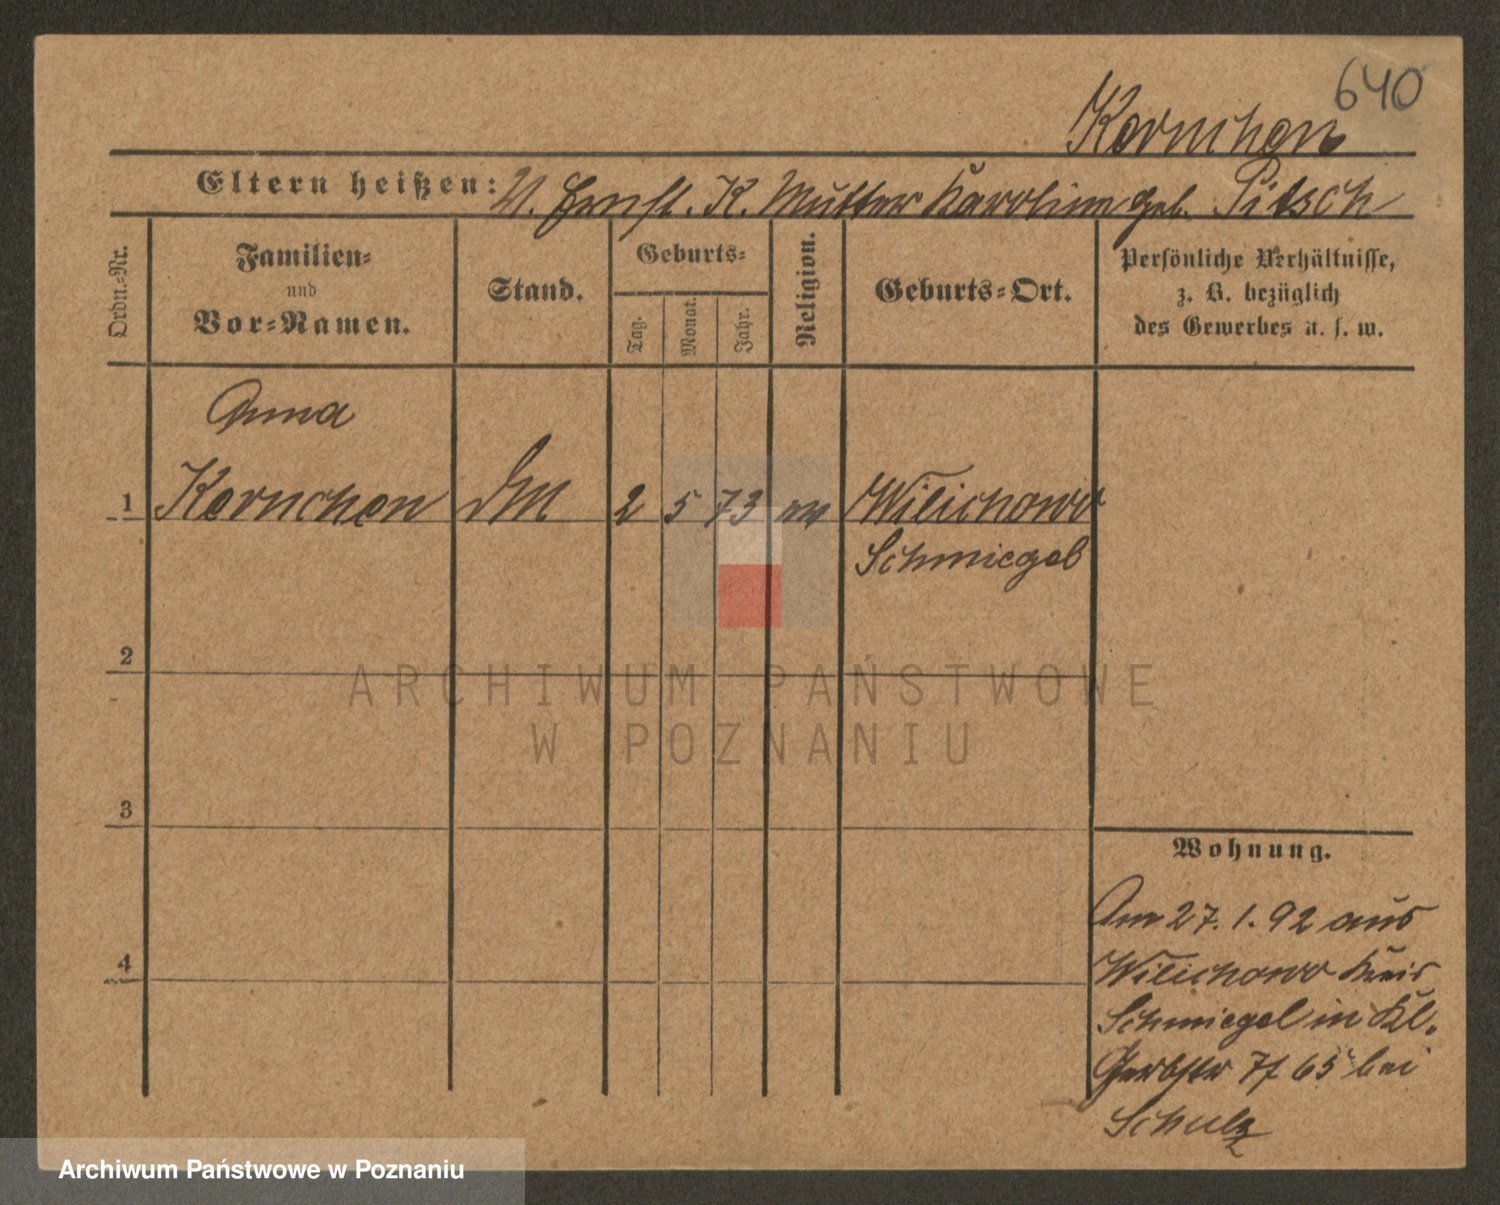 640
Kernchen
Eltern heißen: V. Ernst. K. Mutter Karoline geb. Pitsch
Ordn.-Nr.
Familien-
und
Vor-Namen.
Stand.
Geburts-
Tag.
Monat.
Jahr.
Religion.
Geburts-Ort.
Persönliche Verhältnisse,
z. B. bezüglich
des Gewerbes u. s. w.
Anna
1 Kernchen DM 2 5 73 ev Wilichowo
Schmiegel
2
3
4
Wohnung.
Am 27. 1. 92 aus
Wilichowo Kreis
Schmiegel in Kl.
Gerbstr 7 bei
Schulz
ARCHIWUM PAŃSTWOWE
W POZNANIU
Archiwum Państwowe w Poznaniu